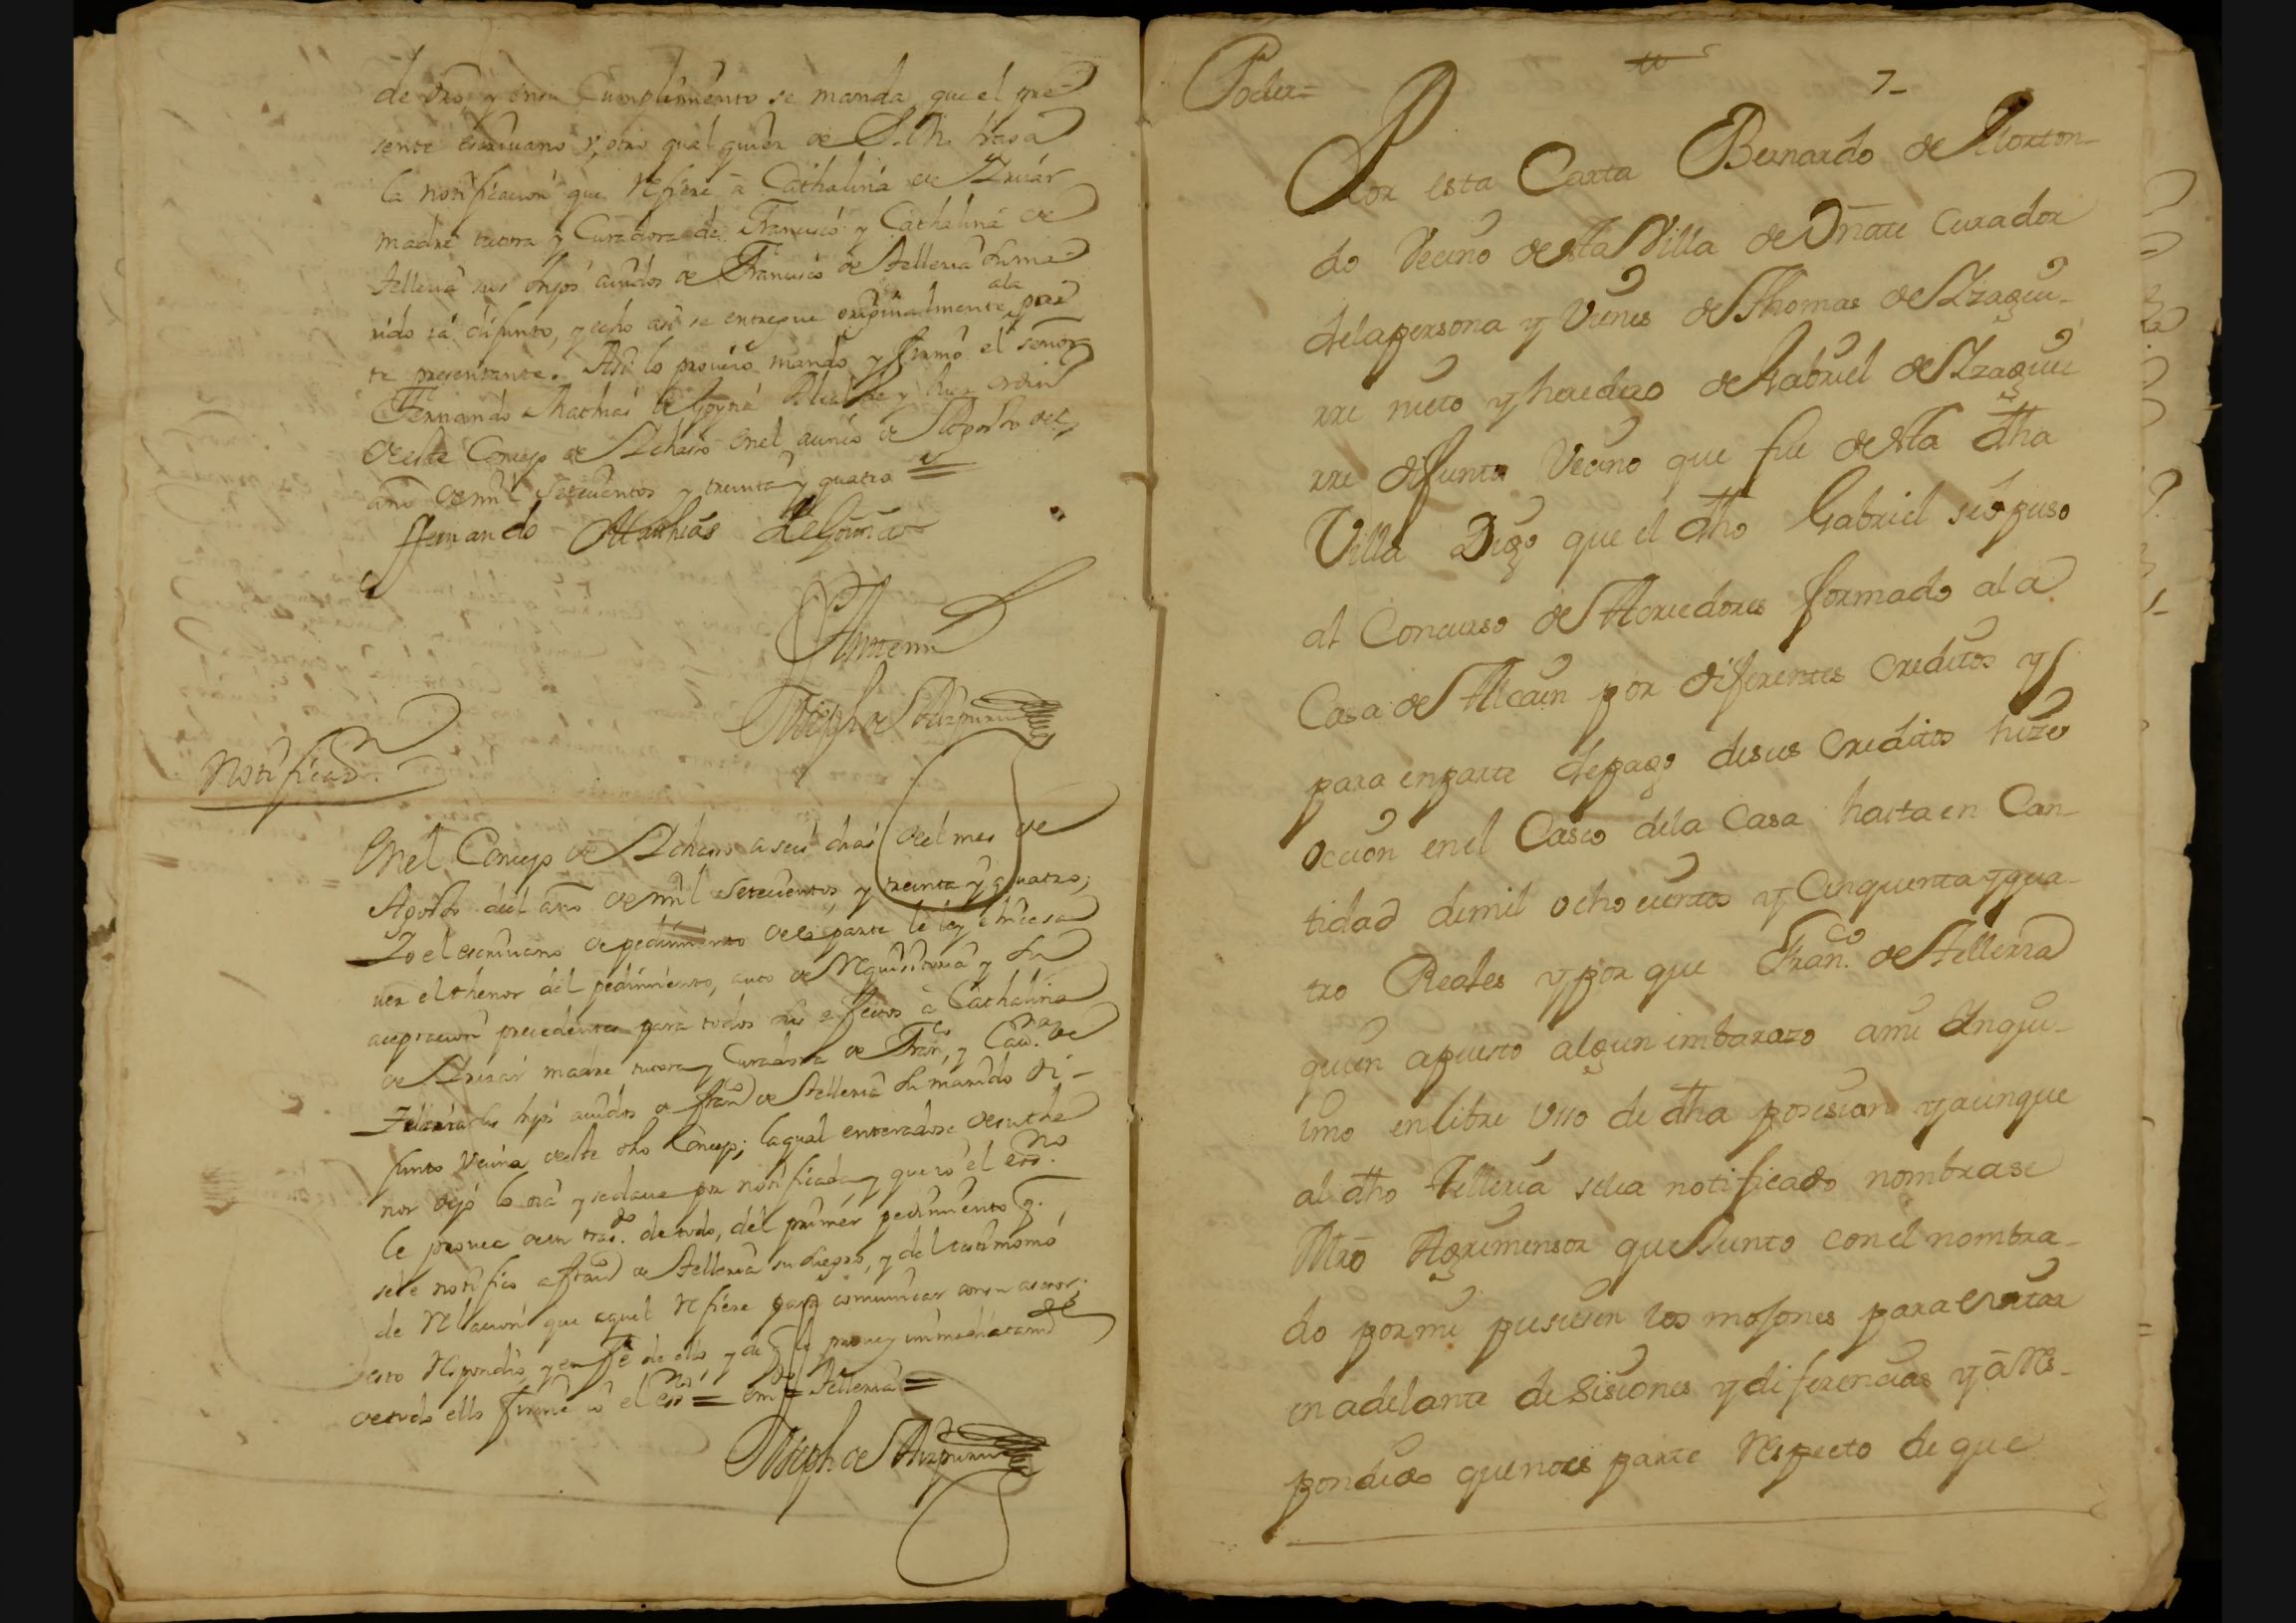 de dro, y en su Cumplimiento se manda que el pre-
sente escriuano v, otro qual quier de S. M. haga
la notificacion que refiere a Cathalina de Yruar
madre tutora y Curadora de Francisco y Cathalina de
Telleria sus hijos auidos de Francisco de Telleria su ma-
rido ia difunto, y echo asi se entregue originalmente ala par-
te presentante. Asi lo proueio mando y firmo el señor
Fernando Mathias de Goyna Alcalde y Juez ordin
de este Concejo de Ychaso en el a seis de Agosto del
año de mil Setecientos y treinta y quatro =
Fernando Matthias de Goina
Ante mi
Joseph de Aizpuru
Notificaon.
En el Concejo de Ychaso a seis dias del mes de
Agosto del año de mil Setecientos, y treinta y quatro;
Yo el escriuano de pedimiento de la parte lei e hice sa
uer el thenor del pedimiento, auto de requisitoria y su
aceptacion precedentes para todos sus efectos a Cathalina
de Yruar madre tutora y Curadora de Franco, y Cata. de
Telleria sus hijos auidos de Franco de Telleria su marido di-
funto Vecina de este dho Concejo; la qual enteradose de su the
nor dijo lo oia y se daua por notificada y que io el essno.
le prouea de un trasdo. de todo, del primer pedimiento q.
se le notifico a Franco de Telleria su suegro, y del testimonio
de relacion que aquel refiere para comunicar con su asesor;
esto respondio, y en fe de ello y de q le prouey inmediatamte
de todo ello firme io el essno = emdo = Telleria =
Joseph de Aizpuru
Poder =
7-
Por esta Carta Bernardo de Elorton-
do Vecino de esta Villa de Oñate Curador
dela persona y Vienes de Thomas de Yzaguir-
rre nieto y heredero de Gabriel de Yzaguir
rre difunto Vecino que fue de esta dha
Villa Digo que el dho Gabriel se opuso
al Concurso de Acreedores formado ala
Casa de Alcain por diferentes Creditos y
para en parte de pago de sus Creditos hizo
occion en el Casco dela Casa hasta en Can-
tidad de mil ochocientos y Cinquenta y qua-
tro Reales y por que Franco. de Telleria
quien a puesto algun imbarazo a mi Inqui-
lino en libre Vsso de dha posesion y aunque
al dho Telleria sele a notificado nombrase
Mro Agrimensor que Junto con el nombra-
do por mi pusiesen los mojones para evitar
en adelante disisiones y diferencias y a Res-
pondido que no es parte Respecto de que